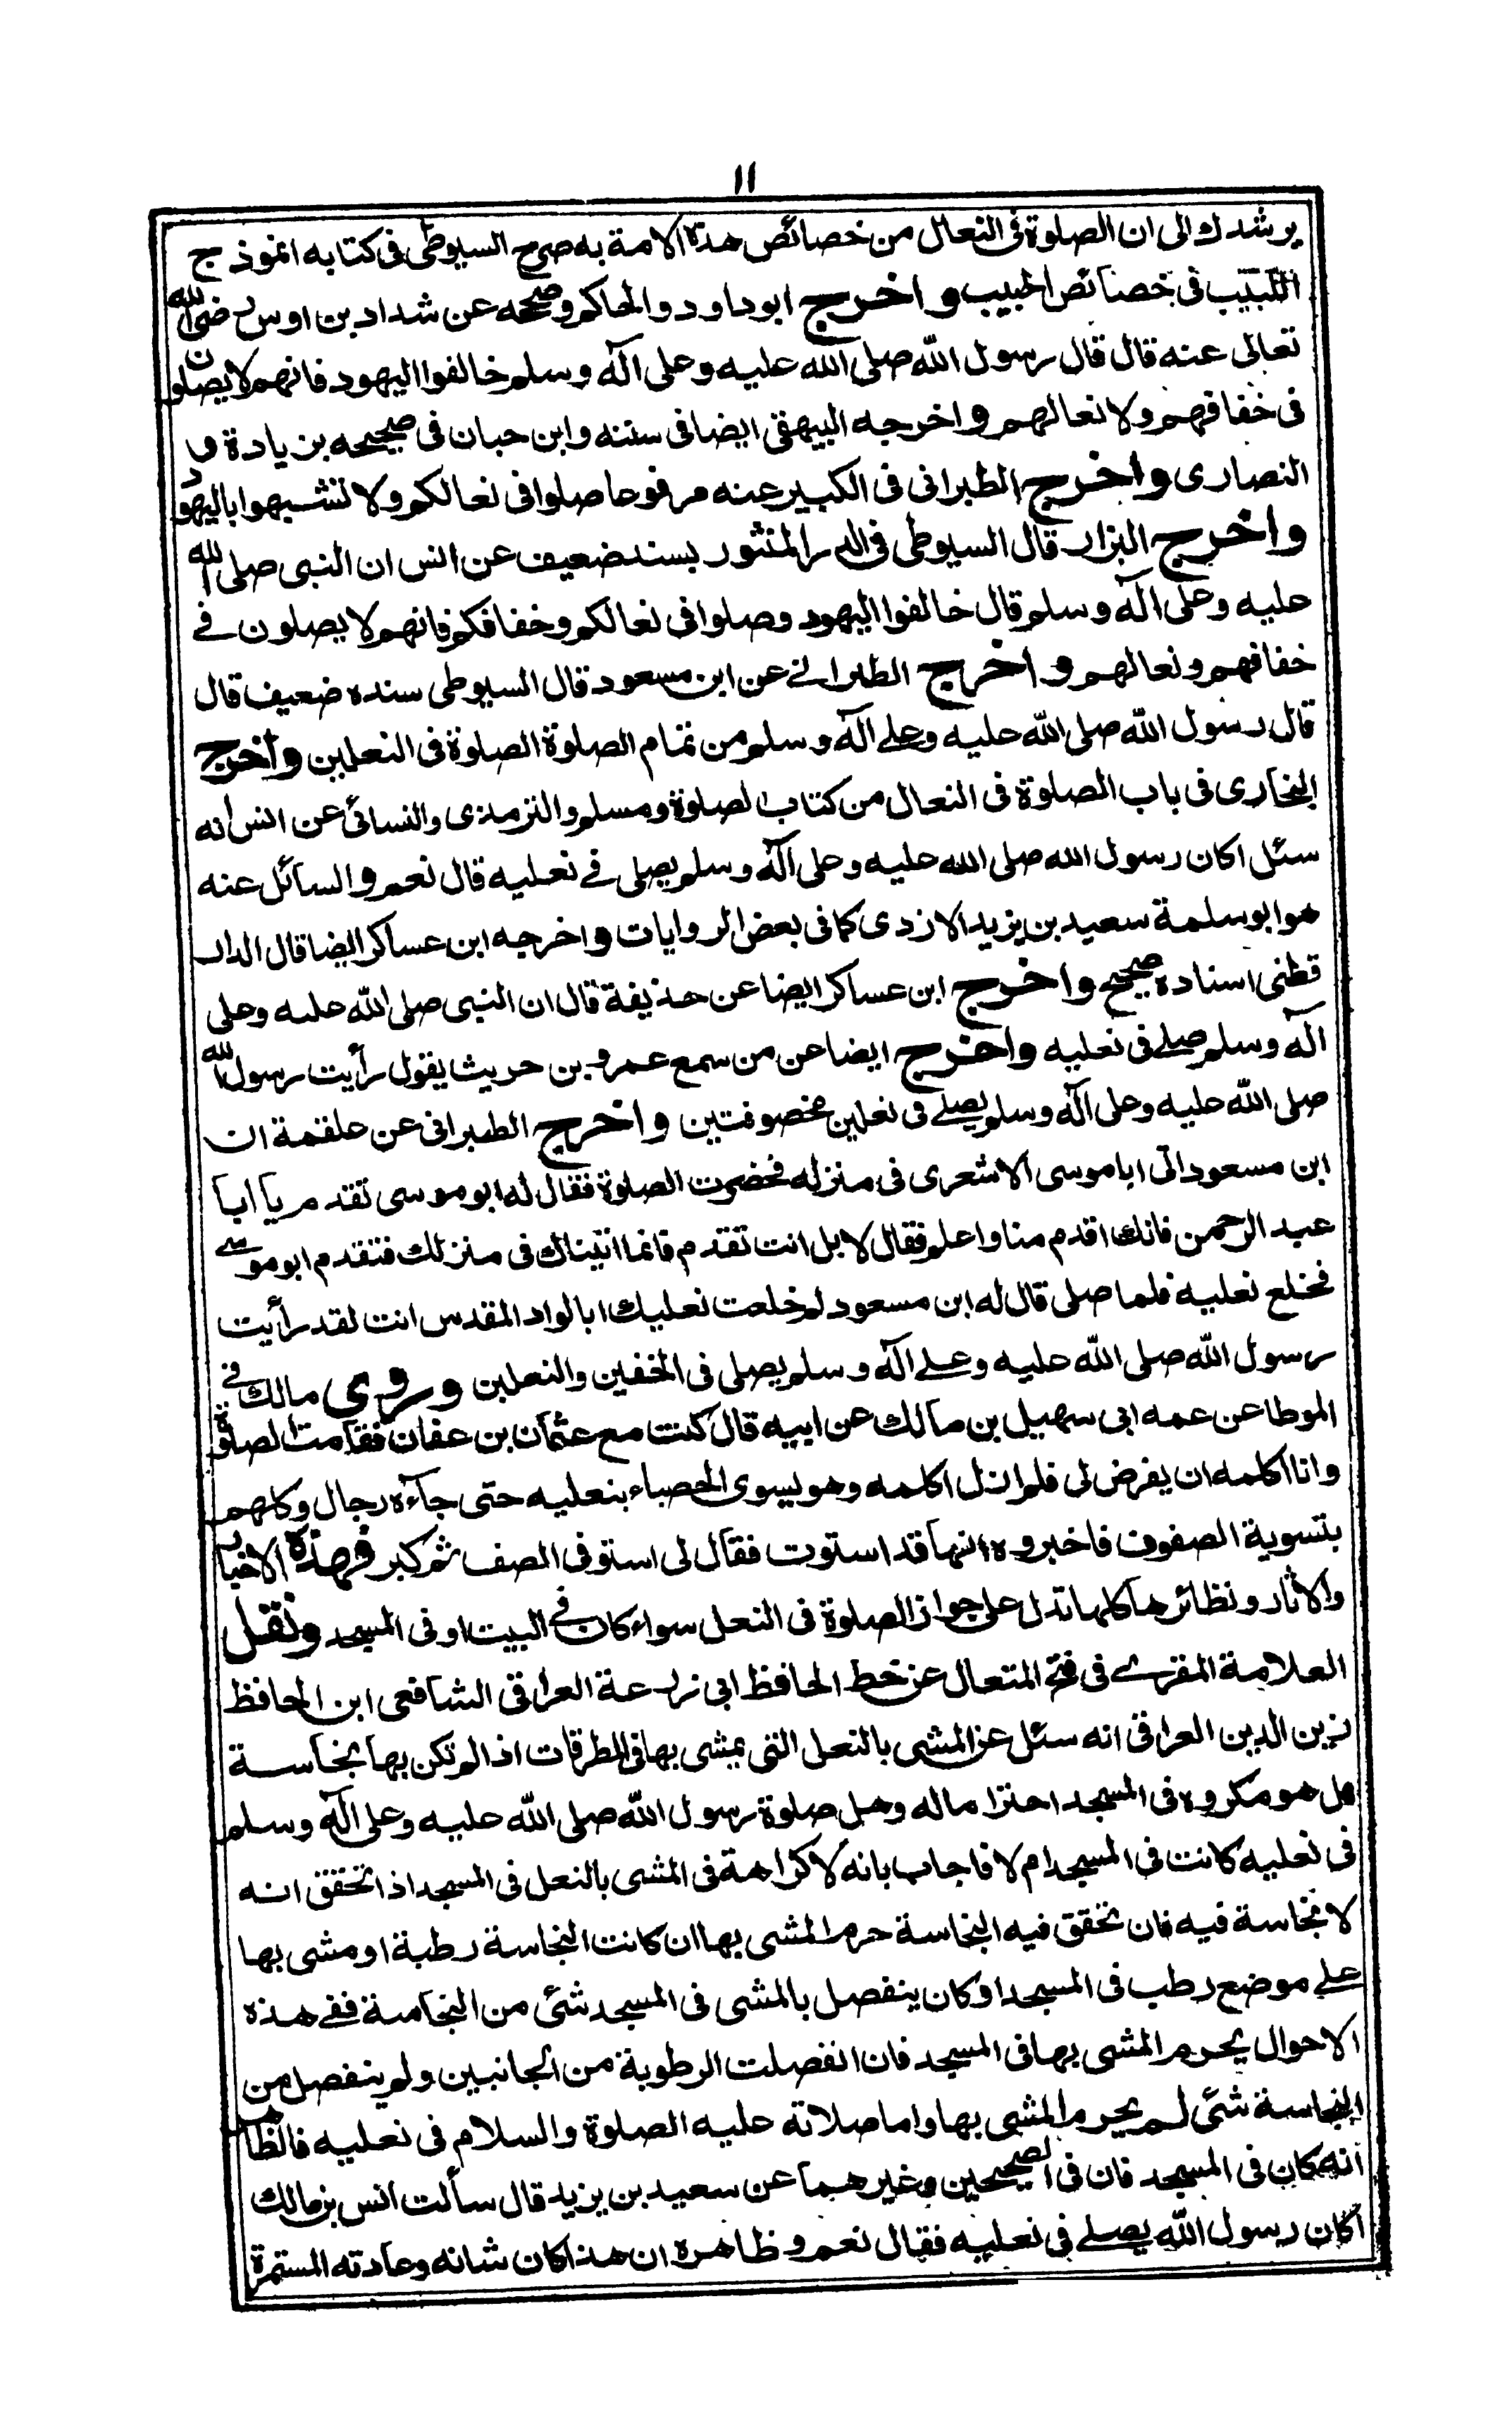 ١١
يرشدك الى ان الصلوة فى النعال من خصائص هذه الامة به صرح السيوطى فى كتابه انموذج
اللبيب فى خصائص الحبيب واخرج ابوداود والحاكم وصححه عن شداد بن اوس رضى الله
تعالى عنه قال قال رسول الله صلى الله عليه وعلى آله وسلم خالفوا اليهود فانهم لا يصلون
فى خفافهم ولا نعالهم واخرجه البيهقى ايضا فى سننه وابن حبان فى صحيحه بزيادة و
النصارى واخرج الطبرانى فى الكبير عنه مرفوعا صلوا فى نعالكم ولا تشبهوا باليهود
واخرج البزار قال السيوطى فى الدر المنثور بسند ضعيف عن انس ان النبى صلى الله
عليه وعلى آله وسلم قال خالفوا اليهود وصلوا فى نعالكم وخفافكم فانهم لا يصلون فے
خفافهم ونعالهم واخرج الطبرانے عن ابن مسعود قال السيوطى سنده ضعيف قال
قال رسول الله صلى الله عليه وعلے آله وسلم من تمام الصلوة الصلوة فى النعلين واخرج
البخارى فى باب الصلوة فى النعال من كتاب الصلوة ومسلم والترمذى والنسائى عن انس انه
سئل اكان رسول الله صلى الله عليه وعلى آله وسلم يصلى فے نعليه قال نعم والسائل عنه
هو ابو سلمة سعيد بن يزيد الازدى كما فى بعض الروايات واخرجه ابن عساكر ايضا قال الدار
قطنى اسناده صحيح واخرج ابن عساكر ايضا عن حذيفة قال ان النبى صلى الله عليه وعلى
آله وسلم صلے فى نعليه واخرج ايضا عن من سمع عمرو بن حريث يقول رأيت رسول الله
صلى الله عليه وعلى آله وسلم يصلے فى نعلين مخصوفتين واخرج الطبرانى عن علقمة ان
ابن مسعود اتى ابا موسى الاشعرى فى منزله فحضرت الصلوة فقال له ابو موسى تقدم يا ابا
عبد الرحمن فانك اقدم منا واعلم فقال لا بل انت تقدم فانما اتيناك فى منزلك فتقدم ابو موسے
فخلع نعليه فلما صلى قال له ابن مسعود لم خلعت نعليك ابالواد المقدس انت لقد رأيت
رسول الله صلى الله عليه وعلے آله وسلم يصلى فى الخفين والنعلين وروى مالك فے
الموطا عن عمه ابى سهيل بن مالك عن ابيه قال كنت مع عثمان بن عفان فقامت الصلوة
وانا اكلمه ان يفرض لى فلم ازل اكلمه وهو يسوى الحصباء بنعليه حتى جآءه رجال وكلهم
بتسوية الصفوف فاخبروه انها قد استوت فقال لى استو فى الصف ثم كبر فهذه الاخبار
والآثار ونظائرها كلها تدل على جواز الصلوة فى النعل سواء كان فے البيت او فى المسجد ونقل
العلامة المقرے فى فتح المتعال عن خط الحافظ ابى زرعة العراقى الشافعى ابن الحافظ
زين الدين العراقى انه سئل عن المشى بالنعل التى يمشى بها فى الطرقات اذا لم تكن بها نجاسة
هل هو مكروه فى المسجد احتراما له وهل صلوة رسول الله صلى الله عليه وعلى آله وسلم
فى نعليه كانت فى المسجد ام لا فاجاب بانه لا كراهة فى المشى بالنعل فى المسجد اذا تحقق انه
لا نجاسة فيه فان تحقق فيه النجاسة حرم المشى بها ان كانت النجاسة رطبة او مشى بها
علے موضع رطب فى المسجد او كان ينفصل بالمشى فى المسجد شئى من النجاسة ففے هذه
الاحوال يحرم المشى بها فى المسجد فان انفصلت الرطوبة من الجانبين ولم ينفصل من
النجاسة شئى لم يحرم المشى بها واما صلاته عليه الصلوة والسلام فى نعليه فالظاهر
انه كان فى المسجد فان فى الصحيحين وغيرهما عن سعيد بن يزيد قال سألت انس بن مالك
اكان رسول الله يصلے فى نعليه فقال نعم وظاهره ان هذا كان شانه وعادته المستمرة